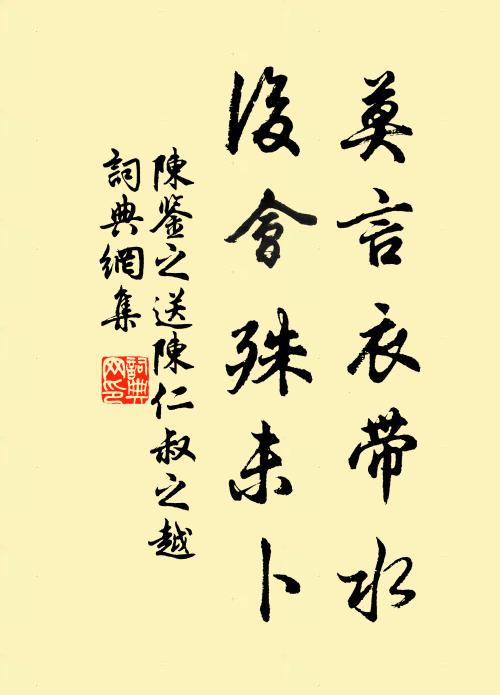 莫言衣带水
後會殊未卜
陳鑒之送陳仁叔之越
詞典網集
詞典網印